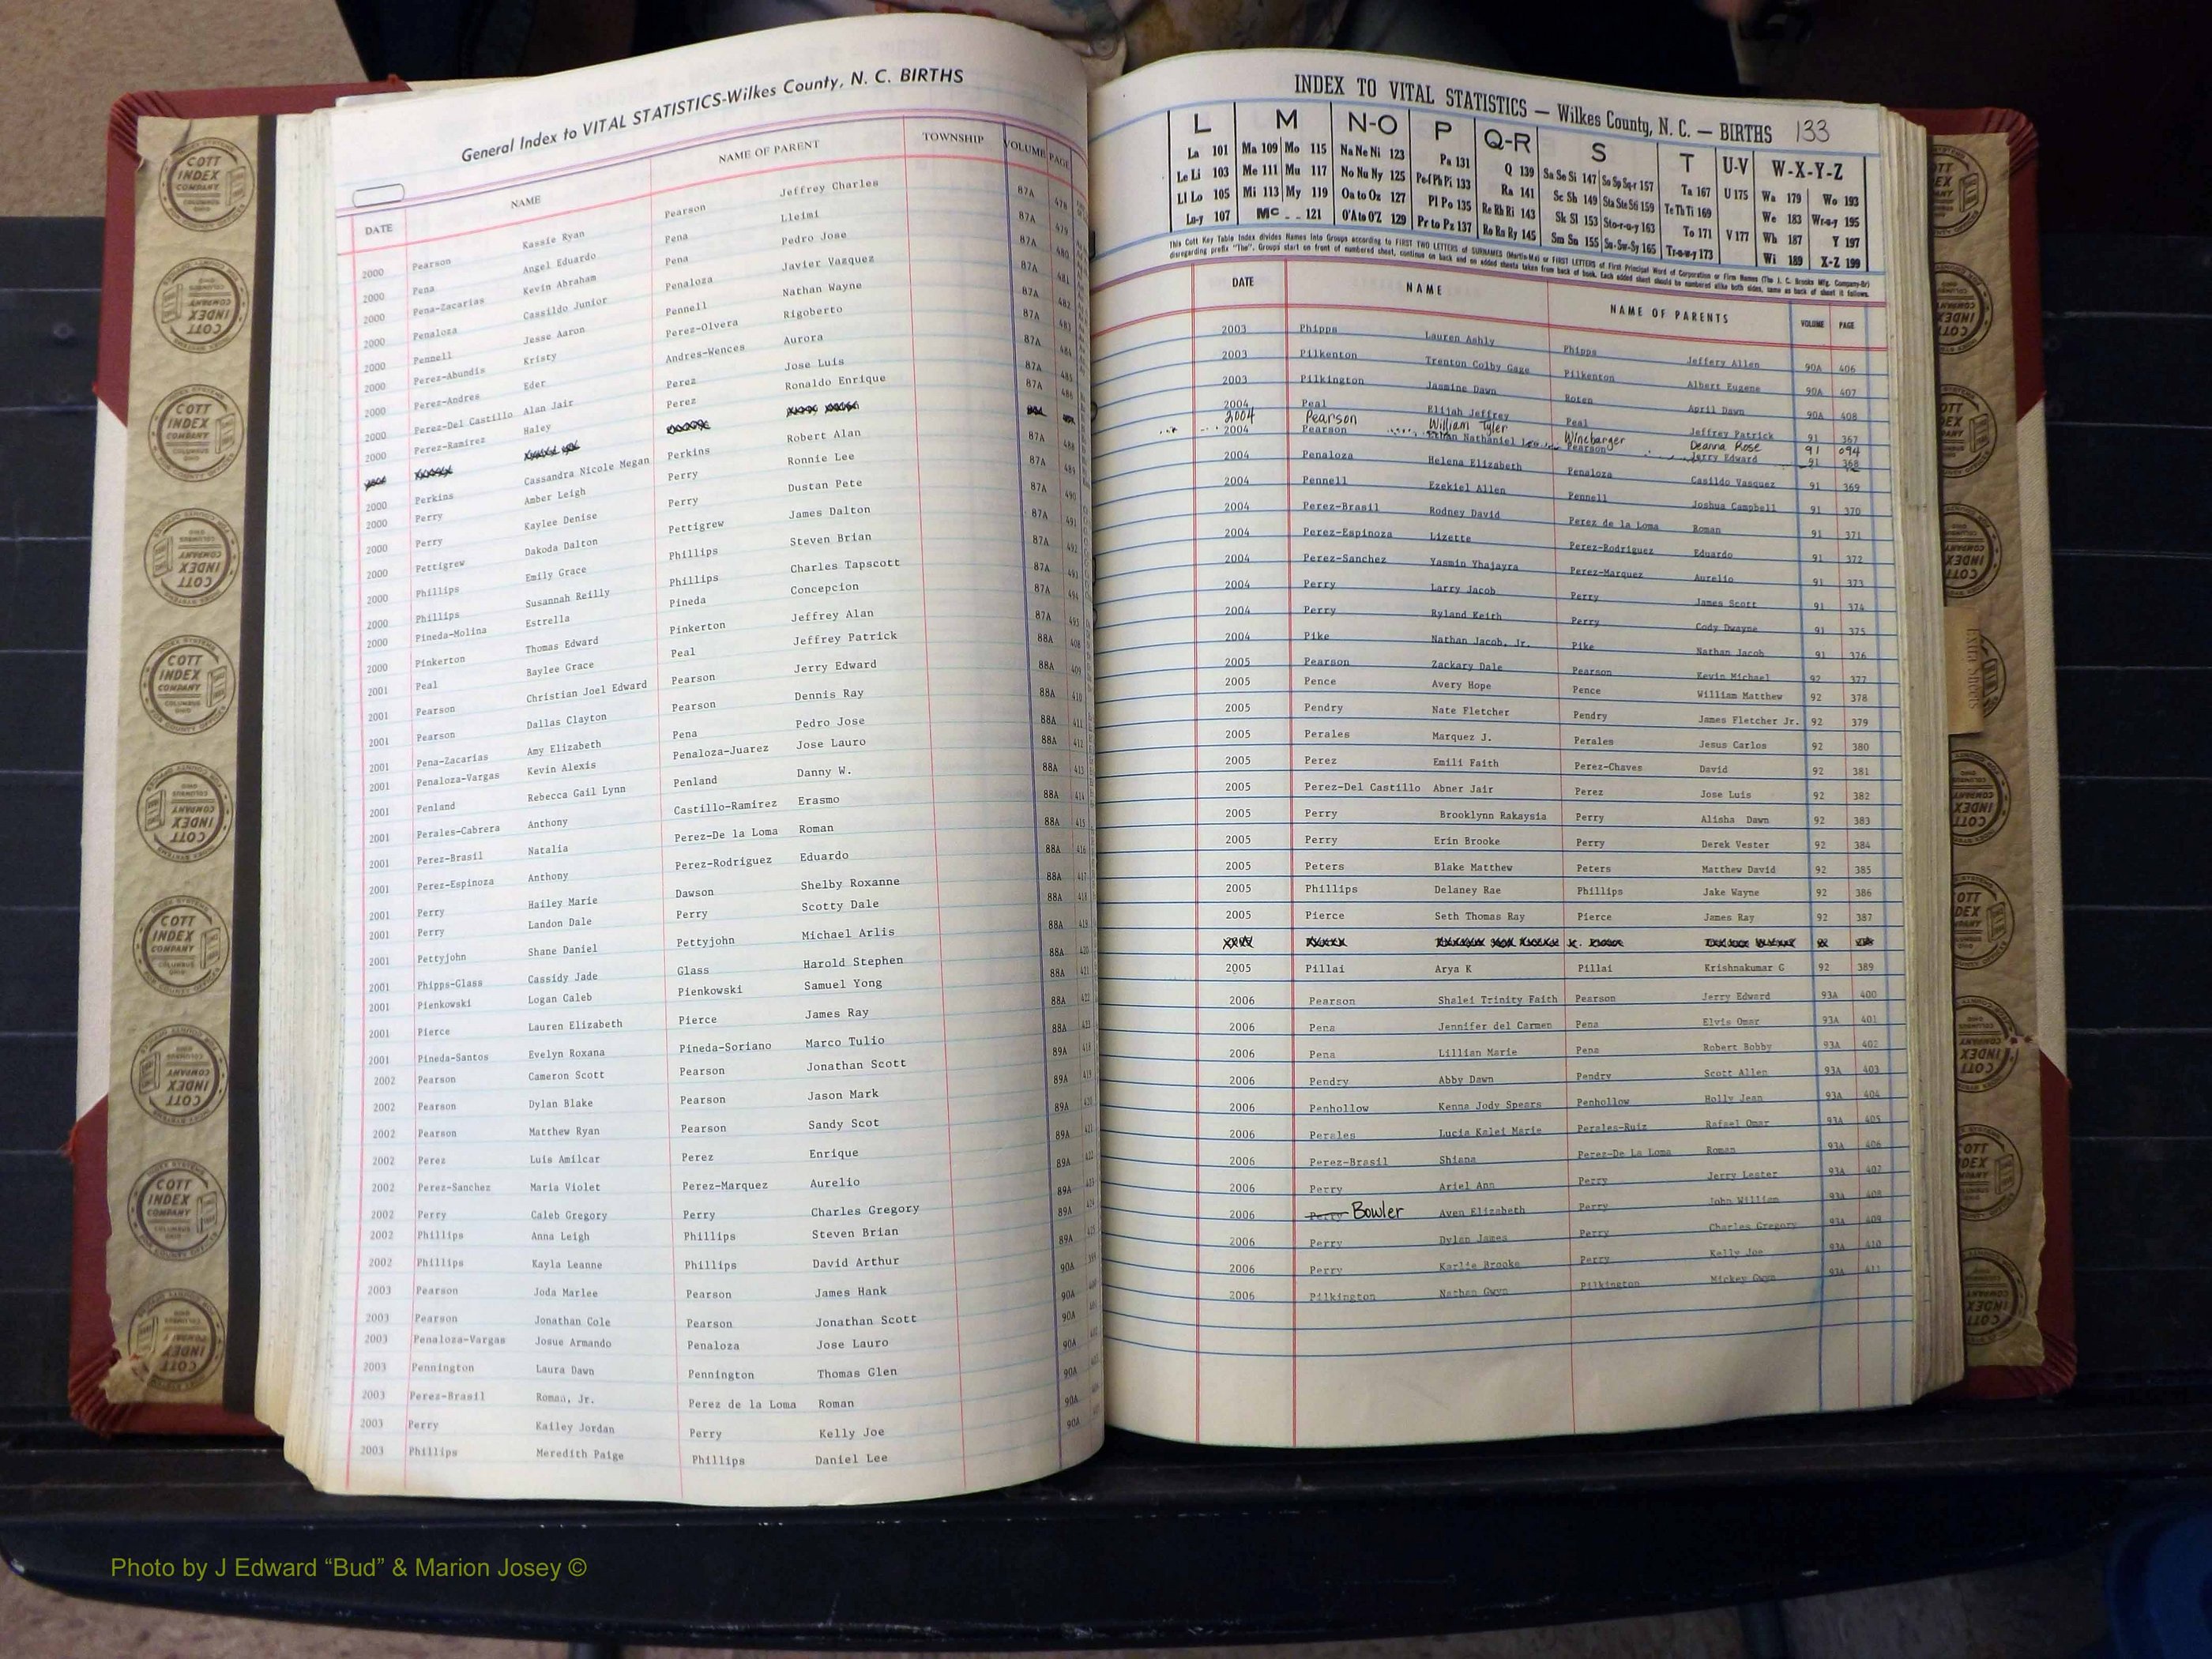 General Index to VITAL STATISTICS-Wilkes County, N. C. BIRTHS
DATE NAME NAME OF PARENT TOWNSHIP VOLUME PAGE
2000 Pearson Kassie Ryan Pearson Jeffrey Charles 87A 478
2000 Pena Angel Eduardo Pena Lleimi 87A 479
2000 Pena-Zacarias Kevin Abraham Pena Pedro Jose 87A 480
2000 Penaloza Cassildo Junior Penaloza Javier Vazquez 87A 481
2000 Pennell Jesse Aaron Pennell Nathan Wayne 87A 482
2000 Perez-Abundis Kristy Perez-Olvera Rigoberto 87A 483
2000 Perez-Andres Eder Andres-Wences Aurora 87A 484
2000 Perez-Del Castillo Alan Jair Perez Jose Luis 87A 485
2000 Perez-Ramirez Haley Perez Ronaldo Enrique 87A 486
2000 Perkins Cassandra Nicole Megan Perkins Robert Alan 87A 488
2000 Perry Amber Leigh Perry Ronnie Lee 87A 489
2000 Perry Kaylee Denise Perry Dustan Pete 87A 490
2000 Pettigrew Dakoda Dalton Pettigrew James Dalton 87A 491
2000 Phillips Emily Grace Phillips Steven Brian 87A 492
2000 Phillips Susannah Reilly Phillips Charles Tapscott 87A 493
2000 Pineda-Molina Estrella Pineda Concepcion 87A 494
2000 Pinkerton Thomas Edward Pinkerton Jeffrey Alan 87A 495
2001 Peal Baylee Grace Peal Jeffrey Patrick 88A 408
2001 Pearson Christian Joel Edward Pearson Jerry Edward 88A 409
2001 Pearson Dallas Clayton Pearson Dennis Ray 88A 410
2001 Pena-Zacarias Amy Elizabeth Pena Pedro Jose 88A 411
2001 Penaloza-Vargas Kevin Alexis Penaloza-Juarez Jose Lauro 88A 412
2001 Penland Rebecca Gail Lynn Penland Danny W. 88A 413
2001 Perales-Cabrera Anthony Castillo-Ramirez Erasmo 88A 414
2001 Perez-Brasil Natalia Perez-De la Loma Roman 88A 415
2001 Perez-Espinoza Anthony Perez-Rodriguez Eduardo 88A 416
2001 Perry Hailey Marie Dawson Shelby Roxanne 88A 417
2001 Perry Landon Dale Perry Scotty Dale 88A 418
2001 Pettyjohn Shane Daniel Pettyjohn Michael Arlis 88A 419
2001 Phipps-Glass Cassidy Jade Glass Harold Stephen 88A 420
2001 Pienkowski Logan Caleb Pienkowski Samuel Yong 88A 421
2001 Pierce Lauren Elizabeth Pierce James Ray 88A 422
2001 Pineda-Santos Evelyn Roxana Pineda-Soriano Marco Tulio 88A 423
2002 Pearson Cameron Scott Pearson Jonathan Scott 89A 418
2002 Pearson Dylan Blake Pearson Jason Mark 89A 419
2002 Pearson Matthew Ryan Pearson Sandy Scot 89A 420
2002 Perez Luis Amilcar Perez Enrique 89A 421
2002 Perez-Sanchez Maria Violet Perez-Marquez Aurelio 89A 422
2002 Perry Caleb Gregory Perry Charles Gregory 89A 423
2002 Phillips Anna Leigh Phillips Steven Brian 89A 424
2002 Phillips Kayla Leanne Phillips David Arthur 89A 425
2003 Pearson Joda Marlee Pearson James Hank 90A
2003 Pearson Jonathan Cole Pearson Jonathan Scott 90A
2003 Penaloza-Vargas Josue Armando Penaloza Jose Lauro 90A
2003 Pennington Laura Dawn Pennington Thomas Glen 90A
2003 Perez-Brasil Roman, Jr. Perez de la Loma Roman 90A
2003 Perry Kailey Jordan Perry Kelly Joe 90A
2003 Phillips Meredith Paige Phillips Daniel Lee 90A
INDEX TO VITAL STATISTICS — Wilkes County, N. C. — BIRTHS 133
L M N-O P Q-R S T U-V W-X-Y-Z
La 101 Ma 109 Mo 115 Na Ne Ni 123 Pa 131 Q 139 Sa Se Si 147 So Sp Sq-r 157 Ta 167 U 175 Wa 179 Wo 193
Le Li 103 Me 111 Mu 117 No Nu Ny 125 Pe-f Ph Pi 133 Ra 141 Sc Sh 149 Sta Ste Sti 159 Te Th Ti 169 We 183 Wr-u-y 195
Ll Lo 105 Mi 113 My 119 Oa to Oz 127 Pl Po 135 Re Rh Ri 143 Sk Sl 153 Sto-r-u-y 163 To 171 V 177 Wh 187 Y 197
Lu-y 107 Mc 121 O'A to O'Z 129 Pr to Pz 137 Ro Ru Ry 145 Sm Sn 155 Su-Sw-Sy 165 Tr-u-w-y 173 Wi 189 X-Z 199
This Cott Key Table Index divides Names Into Groups according to FIRST TWO LETTERS of SURNAMES (Martin-Ma) or FIRST LETTERS of First Principal Word of Corporation or Firm Names (The J. C. Brooks Mfg. Company-Br)
disregarding prefix "The". Groups start on front of numbered sheet, continue on back and on added sheets taken from back of book. Each added sheet should be numbered alike both sides, same as back of sheet it follows.
DATE NAME NAME OF PARENTS VOLUME PAGE
2003 Phipps Lauren Ashly Phipps Jeffery Allen 90A 406
2003 Pilkenton Trenton Colby Gage Pilkenton Albert Eugene 90A 407
2003 Pilkington Jasmine Dawn Roten April Dawn 90A 408
2004 Peal Elijah Jeffrey Peal Jeffrey Patrick 91 367
2004 Pearson William Tyler Winebarger Deanna Rose 91 094
2004 Pearson Nathaniel Pearson Jerry Edward 91 368
2004 Penaloza Helena Elizabeth Penaloza Casildo Vasquez 91 369
2004 Pennell Ezekiel Allen Pennell Joshua Campbell 91 370
2004 Perez-Brasil Rodney David Perez de la Loma Roman 91 371
2004 Perez-Espinoza Lizette Perez-Rodriguez Eduardo 91 372
2004 Perez-Sanchez Yasmin Yhajayra Perez-Marquez Aurelio 91 373
2004 Perry Larry Jacob Perry James Scott 91 374
2004 Perry Ryland Keith Perry Cody Dwayne 91 375
2004 Pike Nathan Jacob, Jr. Pike Nathan Jacob 91 376
2005 Pearson Zackary Dale Pearson Kevin Michael 92 377
2005 Pence Avery Hope Pence William Matthew 92 378
2005 Pendry Nate Fletcher Pendry James Fletcher Jr. 92 379
2005 Perales Marquez J. Perales Jesus Carlos 92 380
2005 Perez Emili Faith Perez-Chaves David 92 381
2005 Perez-Del Castillo Abner Jair Perez Jose Luis 92 382
2005 Perry Brooklynn Rakaysia Perry Alisha Dawn 92 383
2005 Perry Erin Brooke Perry Derek Vester 92 384
2005 Peters Blake Matthew Peters Matthew David 92 385
2005 Phillips Delaney Rae Phillips Jake Wayne 92 386
2005 Pierce Seth Thomas Ray Pierce James Ray 92 387
2005 Pillai Arya K Pillai Krishnakumar G 92 389
2006 Pearson Shalei Trinity Faith Pearson Jerry Edward 93A 400
2006 Pena Jennifer del Carmen Pena Elvis Omar 93A 401
2006 Pena Lillian Marie Pena Robert Bobby 93A 402
2006 Pendry Abby Dawn Pendry Scott Allen 93A 403
2006 Penhollow Kenna Jody Spears Penhollow Holly Jean 93A 404
2006 Perales Lucia Kalei Marie Perales-Ruiz Rafael Omar 93A 405
2006 Perez-Brasil Shiana Perez-De La Loma Roman 93A 406
2006 Perry Ariel Ann Perry Jerry Lester 93A 407
2006 Perry Bowler Aven Elizabeth Perry John William 93A 408
2006 Perry Dylan James Perry Charles Gregory 93A 409
2006 Perry Karlie Brooke Perry Kelly Joe 93A 410
2006 Pilkington Nathan Gwyn Pilkington Mickey Gwyn 93A 411
COTT INDEX COMPANY COLUMBUS OHIO
Photo by J Edward “Bud” & Marion Josey ©